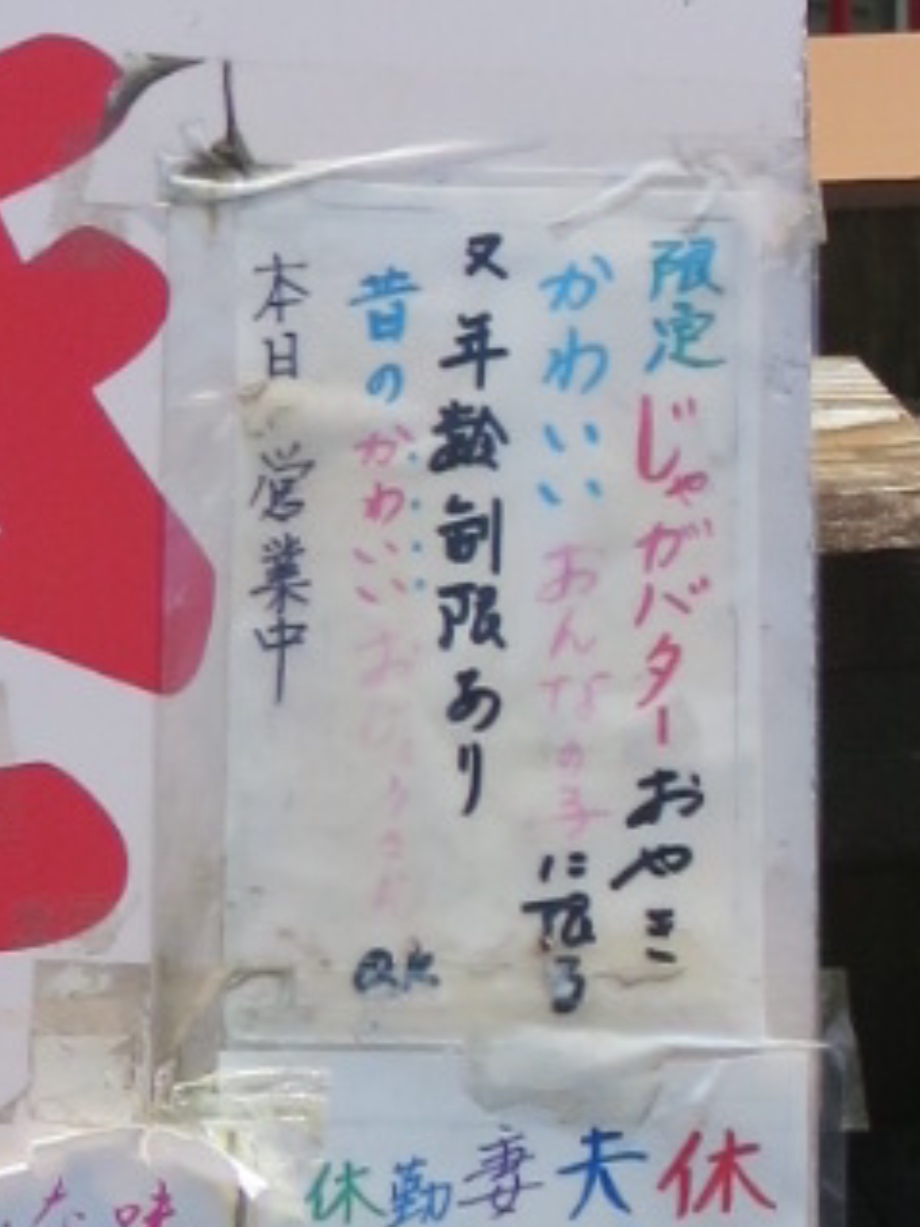 限定じゃがバターおやき
かわいいおんなの子に限る
又年齢制限あり
昔のかわいいおじょうさんOK
本日営業中
休夫妻勤休
な味